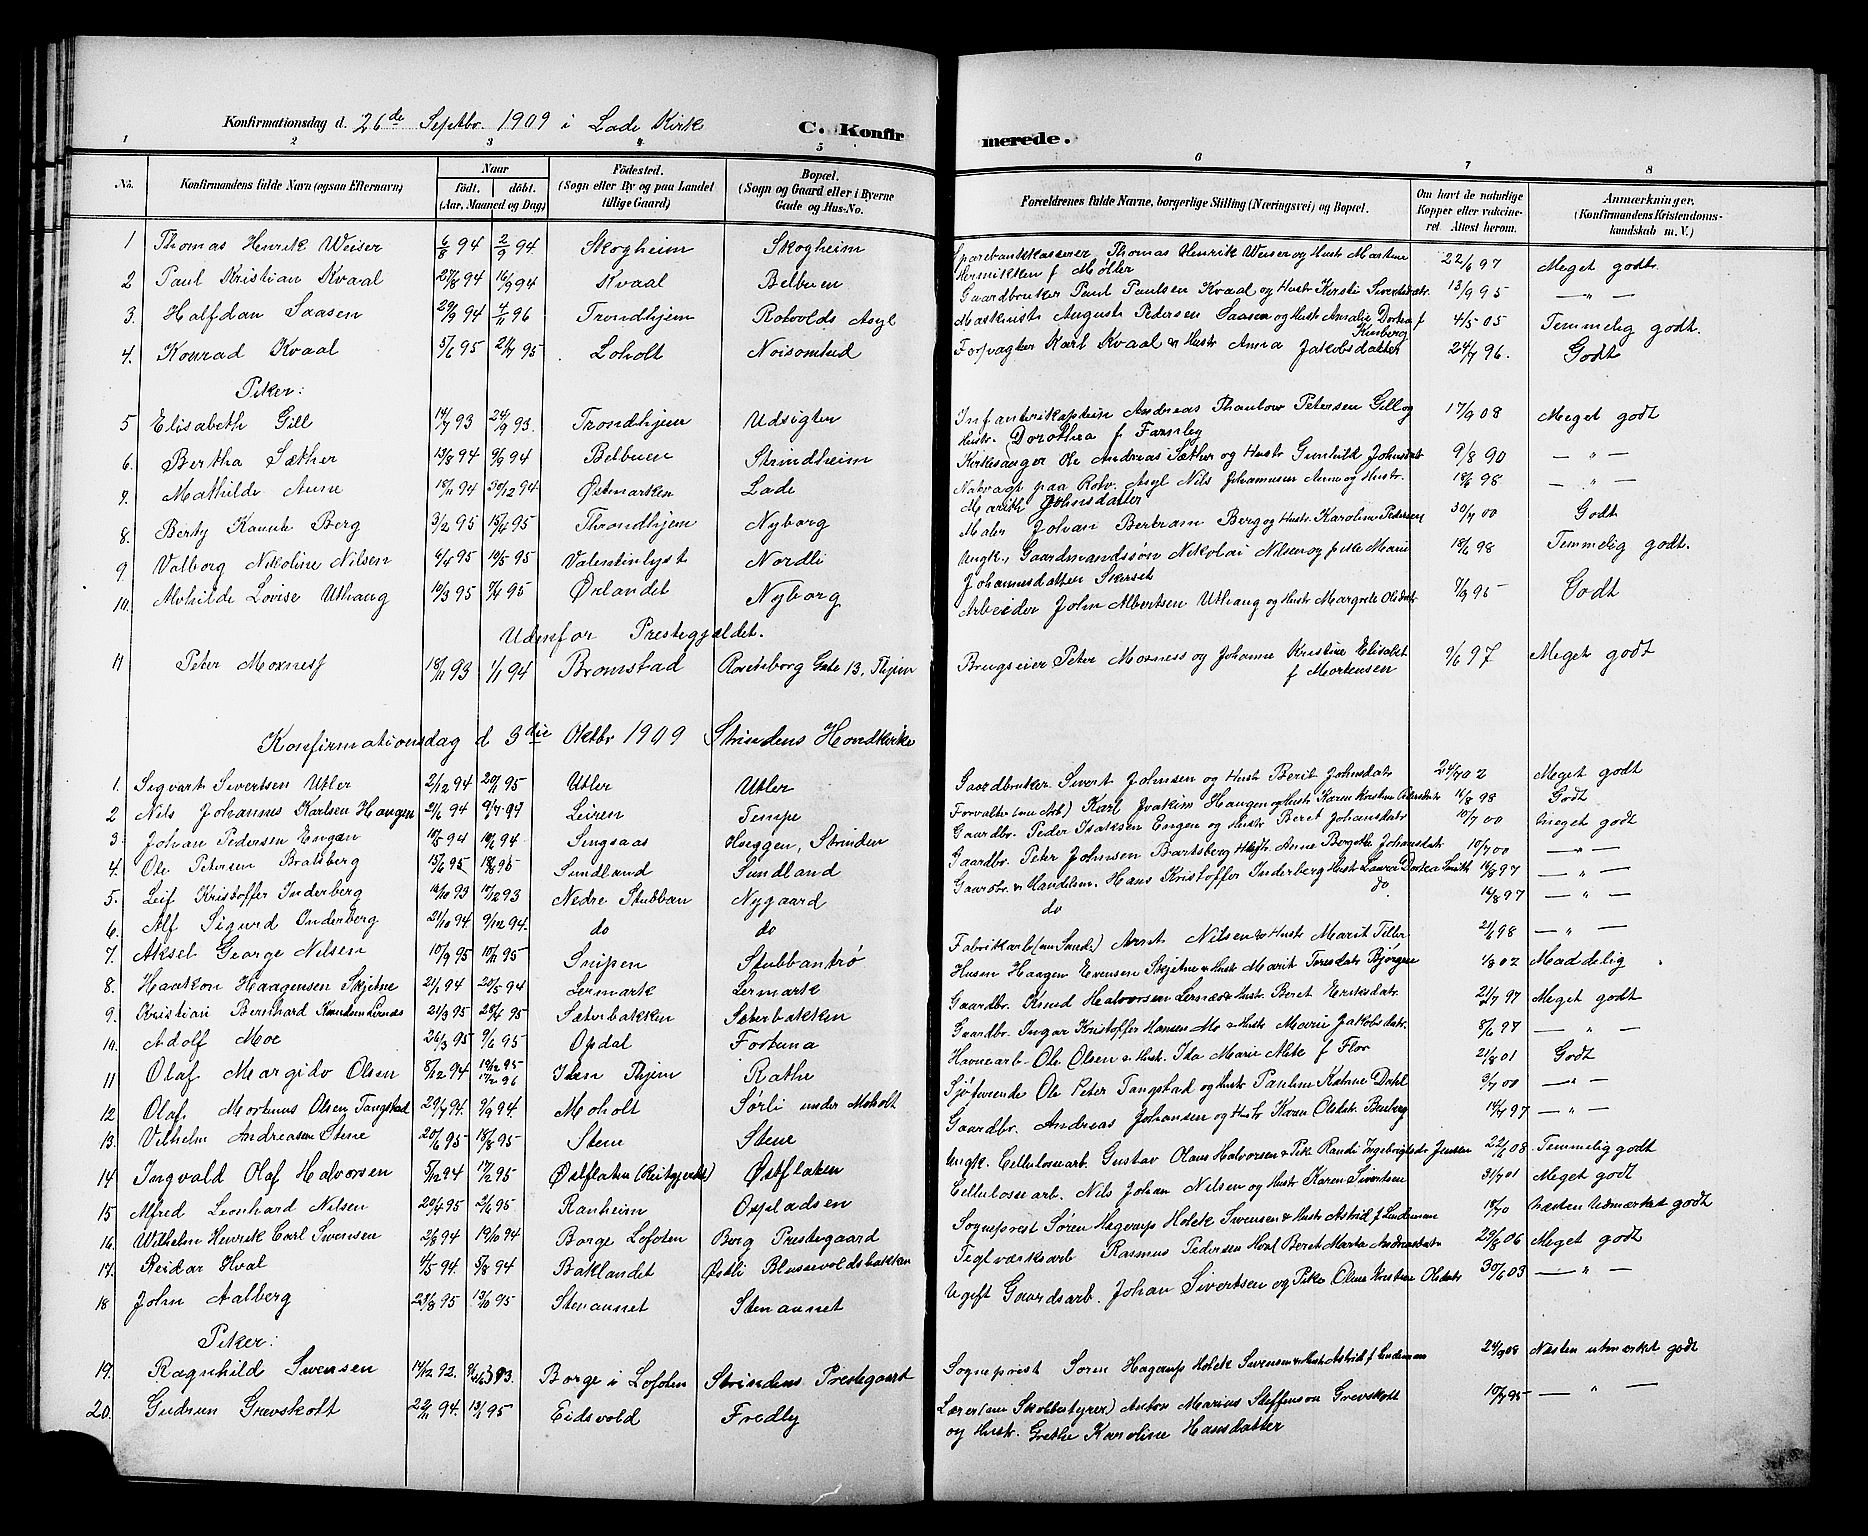 Konfirmationsdag d. 26de Septbr. 1909 i Lade Kirke C. Konfirmerede.
1 2 3 4 5 6 7 8
No. Konfirmandens fulde Navn (ogsaa Efternavn) Naar født. døbt. (Aar, Maaned og Dag) Fødested. (Sogn eller By og paa Landet tillige Gaard) Bopæl. (Sogn og Gaard eller i Byerne Gade og Hus-No. Forældrenes fulde Navne, borgerlige Stilling (Næringsvei) og Bopæl. Om havt de naturlige Kopper eller vaccineret. Attest herom. Anmærkninger. (Konfirmandens Kristendomskundskab m. V.)
1 Thomas Henrik Weiser 6/8 94 2/9 94 Skogheim Skogheim Sparebankkasserer Thomas Henrik Weiser og Hustr Martine Henrikken f Møller 22/6 97 Meget godt
2 Paul Kristian Kvaal 27/8 94 16/9 94 Kvaal Belbuen Gaardbruker Paul Paulsen Kvaal og Hustr Kirsti Sivertsdatr. 13/9 95 — " —
3. Halfdan Saasen 29/9 94 4/11 96 Trondhjem Rotvolds Asyl Maskinist August Pedersen Saasen og Hustr Amalie Dortea f Kinberg 4/5 05 Temmelig godt.
4. Konrad Kvaal 5/6 95 21/7 95 Loholt Noisomhed Forpagter Karl Kvaal & Hustr Anna Jakobsdatter 24/7 96. Godt
Piker:
5 Elisabeth Gill 14/7 93 24/9 93. Trondhjem Udsigten Infanterikaptein Andreas Thaulow Petersen Gill og Hustr. Dorothea f Farnley 17/9 08 Meget godt
6. Bertha Sæther 13/8 94 9/9 94 Belbuen Strindheim Kirkesanger Ole Andreas Sæther og Hustr Gunhild Johnsdatr 9/8 90 — " —
7. Mathilde Aune 18/11 94 30/12 94 Østmarken Lade Natvagt paa Rotv. Asyl Nils Johannesen Aune og Hustr. Marith Johnsdatter 18/6 98 — " —
8. Berty Kannik Berg 3/2 95 15/6 95 Throndhjem Nyborg Maler Johan Bertram Berg og Hustr. Karoline Pedersen 30/7 00 Godt
9 Valborg Nikoline Nilsen 4/4 95 19/5 95 Valentinlyst Nordli Ungk., Gaardmandssøn Nikolai Nilsen og pike Marie Johannesdatter Skarset 18/6 98 Temmelig godt.
10. Mohilde Lovise Uthaug 10/3 95 7/4 95 Ørlandet Nyborg Arbeider John Albertsen Uthaug og Hustr Margrete Olsdatr 7/9 95 Godt
Udenfor Prestegjældet.
11 Peter Moxness 18/11 93 1/1 94 Bromstad Rosenborg Gate 13, Thjem Brugseier Peter Moxness og Johanne Kristine Elisabet f Mortensen 9/6 97 Meget godt
Konfirmationsdag d 3die Oktbr 1909 Strindens Hovedkirke
1. Sigvart Sivertsen Utler 2/12 94 20/1 95 Utler Utler Gaardbruker Sivert Johnsen og Hustr Berit Johnsdatr 24/7 02 Meget godt
2 Nils Johannes Karlsen Haugen 2/6 94 9/7 94 Leiren Tempe Forvalter (nu Arb) Karl Joakim Haugen og Hustr Karen Kristine Pedersdatr 16/8 98 Godt
3. Johan Pedersen Engan 10/5 94 10/6 94 Singsaas Hoeggen, Strinden Gaardbr. Peder Isaksen Engen og Hustr Beret Johansdatr 10/7 00 Meget godt
4. Ole Petersen Bratsberg 15/6 95 18/8 95 Sundland Sundland Gaardbr. Peter Johnsen Bartsberg Hustr. Anne Bergitte Johansdatr 10/7 00 — " —
5. Leif Kristoffer Inderberg 12/10 93 17/12 93 Nedre Stubban Nygaard Gaardbr. & Handelsm. Hans Kristoffer Inderberg Hustr Laura Dortea Smith 16/8 97 — " —
6. Alf Sigurd Inderberg 21/10 94 9/12 94. do do do do 16/8 97 — " —
7. Aksel George Nilsen 10/9 95 10/11 95 Snipen Stubbantrø Fabrikarb (nu Smede) Arnt Nilsen & Hustr Marit Tiller 2/6 98 — " —
8. Haakon Haagensen Skjetne 2/1 94 20/5 94 Lermark Lermark Husm Haagen Evensen Skjetne & Hustr Marit Toresdatr Bjørgne 1/8 02 Maadelig
9. Kristian Bernhard Knudsen Lernæs 21/3 95 28/4 95 Sæterbakken Sæterbakken Gaardbr. Knud Halvorsen Lernæs & Hustr Beret Eriksdatr. 21/7 97 Meget godt
10. Adolf Moe 26/3 95 9/6 95 Opdal Fortuna Gaardbr. Ingar Kristoffer Hansen Mo & Hustr Marie Jakobsdatr. 8/6 97 — " —
11 Olaf Margido Olsen 8/12 94 19/12 95 17/2 96 Ilen Thjem Rathe Havnearb. Ole Olsen & Hustr. Ida Marie Mete f Flor 21/8 01 Godt
12. Olaf Mortinus Olsen Tangstad 29/7 94. 9/9 94 Moholt Sørli under Moholt Sjøfarende Ole Peter Tangstad og Hustr Pauline Katrine Dahl 3/7 00 — " —
13. Vilhelm Andreasen Stene 20/6 95 18/8 95 Stene Stene Gaardbr. Andreas Johansen og Hustr Karen Olsdatr. Benberg 14/7 97 — " —
14 Ingvald Olaf Halvorsen 5/12 94 17/2 95 Østflaten (Reitgjerdet) Østflaten Ungk. Cellulosearb. Gustav Olaus Halvorsen & Pike Randi Ingebrigtsdr Jensen 22/6 08 Temmelig godt
15 Alfred Leonhard Nilsen 20/4 95 2/6 95 Ranheim Oxpladsen Cellulosearb. Nils Johan Nilsen og Hustr Karen Sivertsen 31/7 01 Meget godt
16. Wilhelm Henrik Carl Swensen 2/8 94 19/10 94 Borge Lofoten Berg Prestegaard Sogneprest Søren Hagerup Holck Swensen & Hustr Astrid f Lindeman Næsten Udmærket godt
17. Reidar Hval 4/5 94. 5/8 94 Baklandet Østli Blussevoldsbakken Teglværksarb Rasmus Pedersen Hval Beret Marta Andreasdatr 29/8 06 Meget godt
18 John Aalberg 23/8 95 13/10 95 Stenaunet Stenaunet Ugift Gaardsarb. Johan Sivertsen og Pike Oline Kristine Olsdatr 30/6 03 — " —
Piker:
19. Ragnhild Swensen 14/12 92. Borge i Lofoten Strindens Prestegaard Sogneprest Søren Hagerup Holck Swensen & Hustr Astrid f Lindeman 24/9 08 Næsten utmerket godt
20. Gudrun Grevskott 22/11 94. 13/1 95 Eidsvold Fredly Lærer (nu Skolbestyrer) Anton Marius Steffenson Grevskott og Hustr. Grethe Karoline Hansdatter 10/7 95 — " —